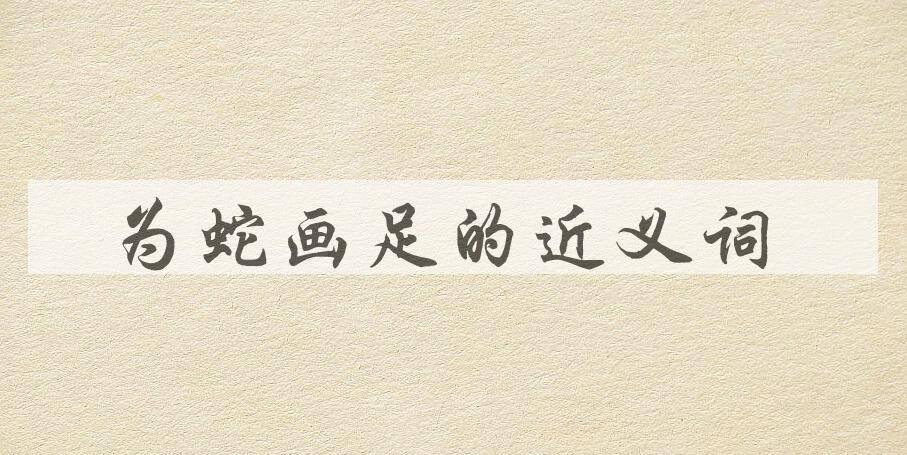 为蛇画足的近义词